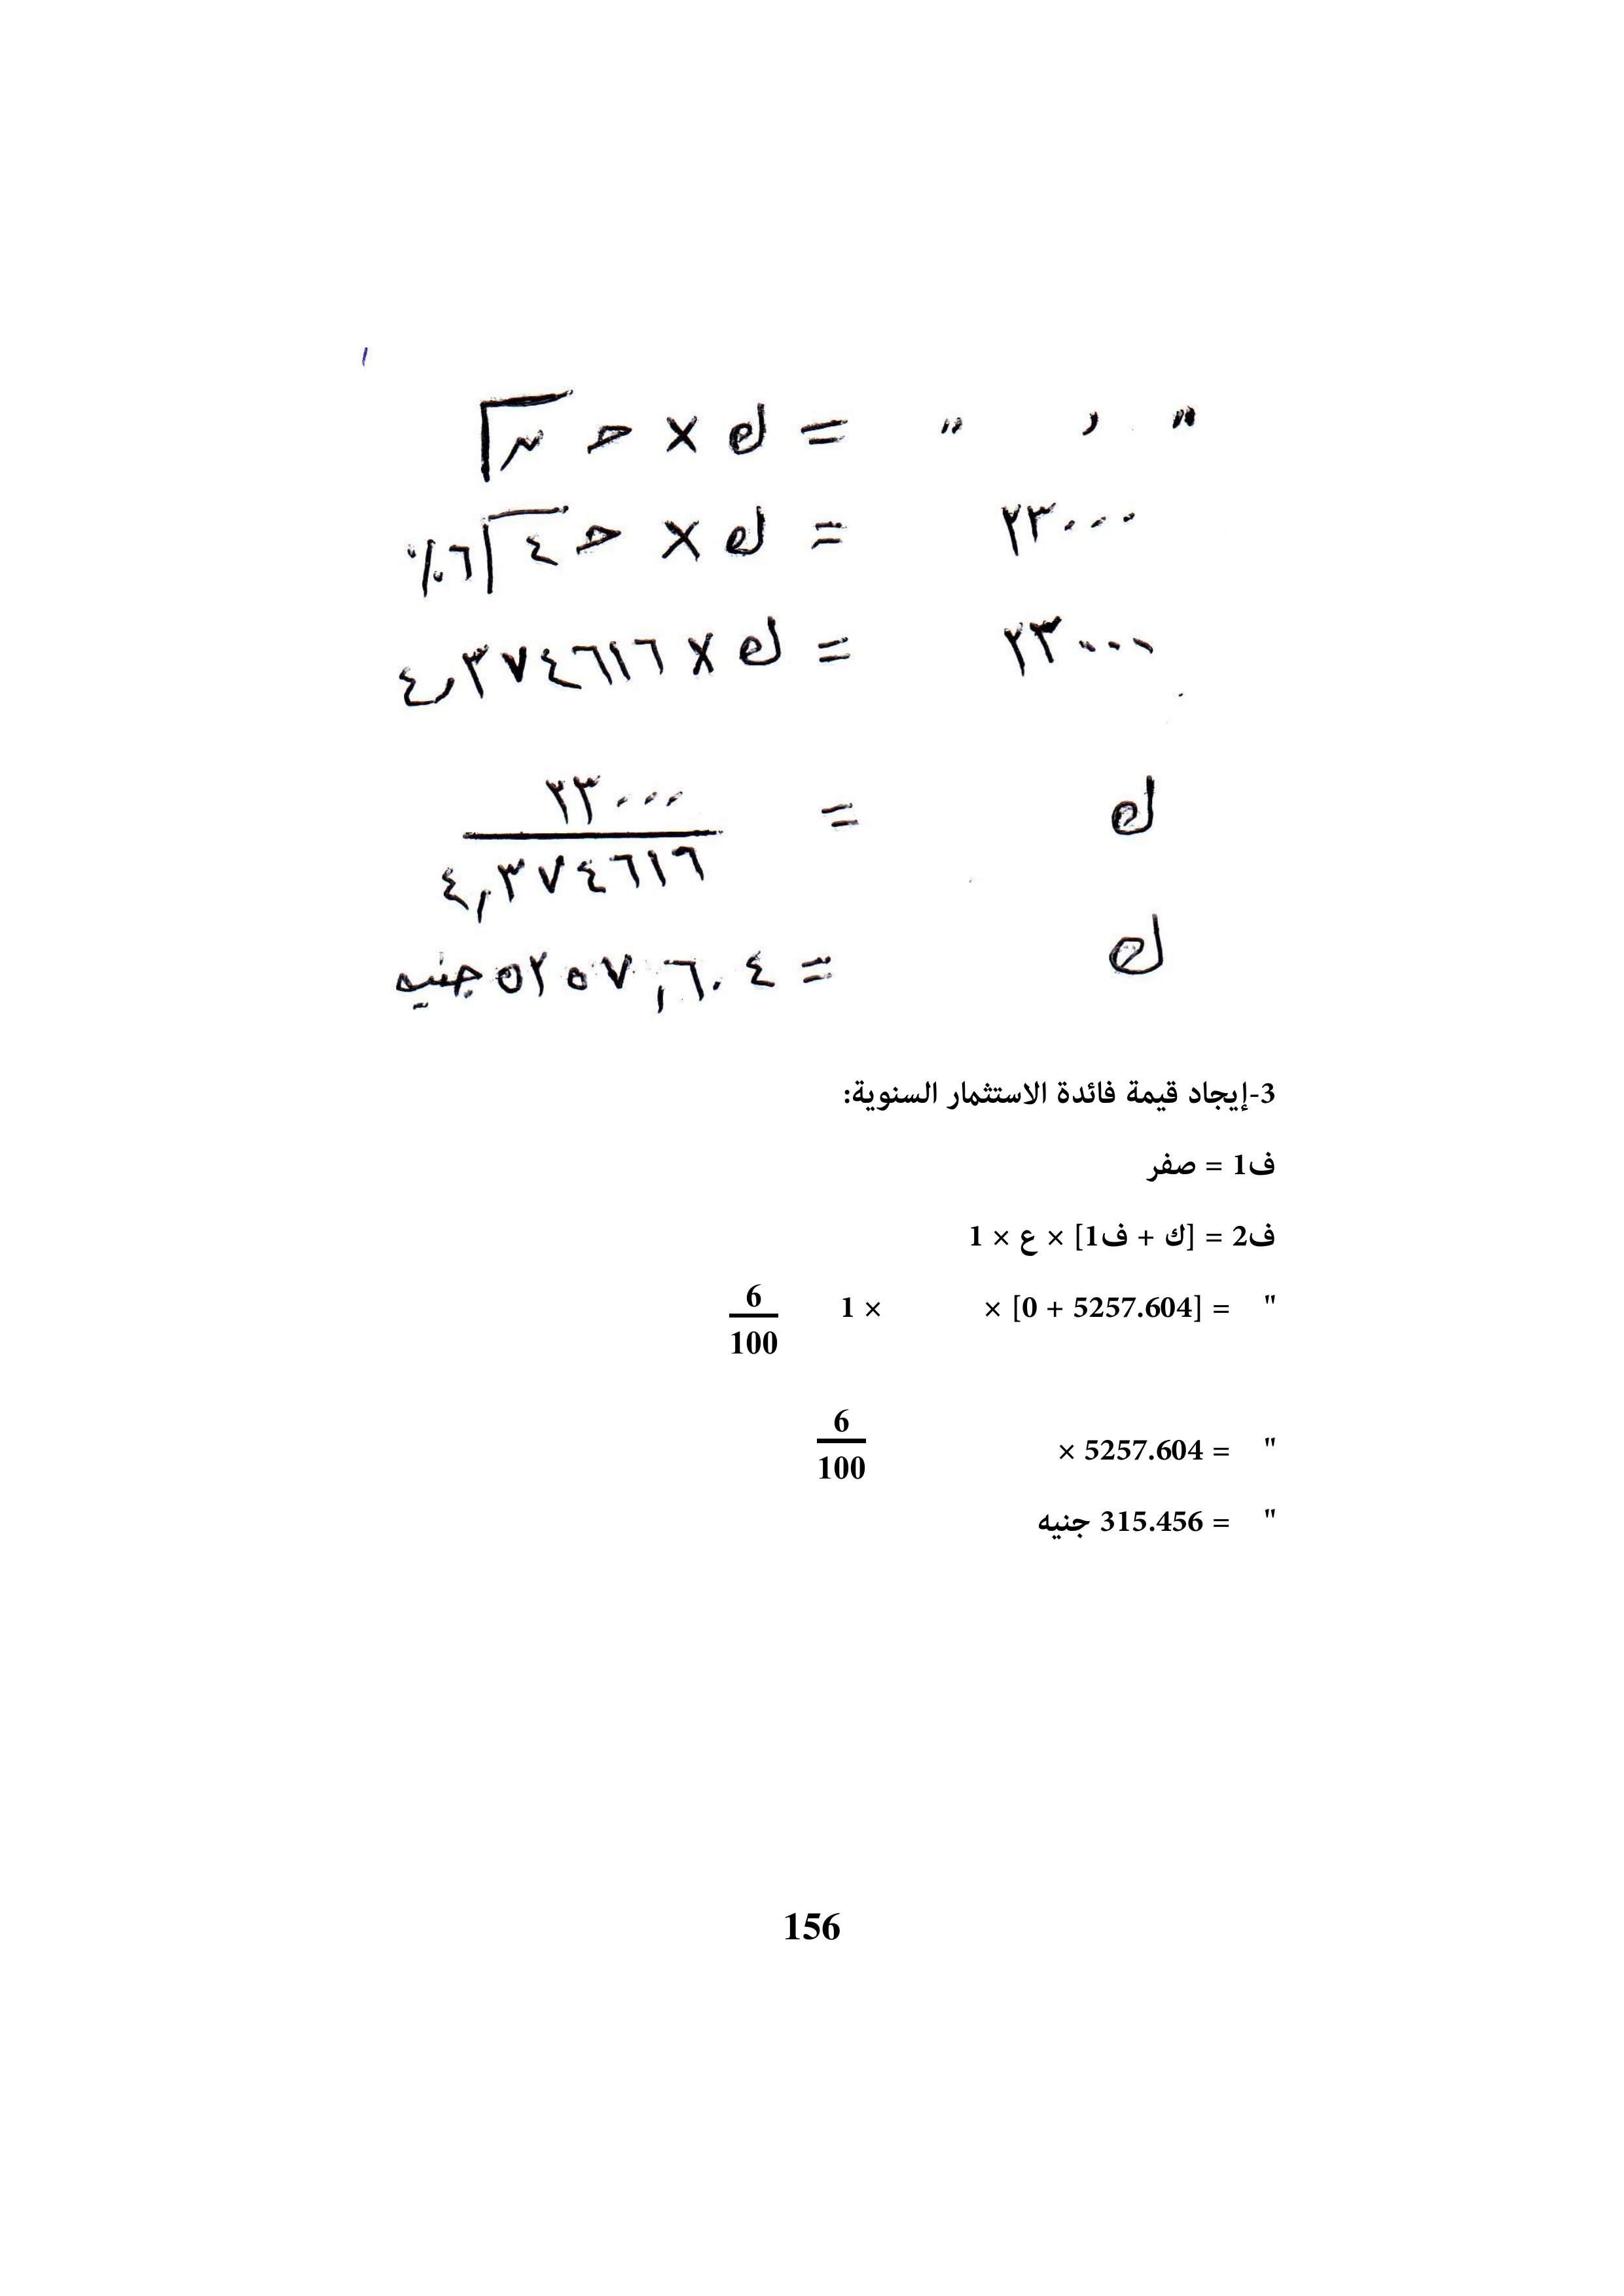 " , " = ك × حـ ن
٢٣٠٠٠ = ك × حـ ٤ ٦٪
٢٣٠٠٠ = ك × ٤,٣٧٤٦١٦
ك = ٢٣٠٠٠ / ٤,٣٧٤٦١٦
ك = ٥٢٥٧,٦٠٤ جنيه
3-إيجاد قيمة فائدة الاستثمار السنوية:
ف1 = صفر
ف2 = [ك + ف1] × ع × 1
" = [5257.604 + 0] × 6/100 × 1
" = 5257.604 × 6/100
" = 315.456 جنيه
156